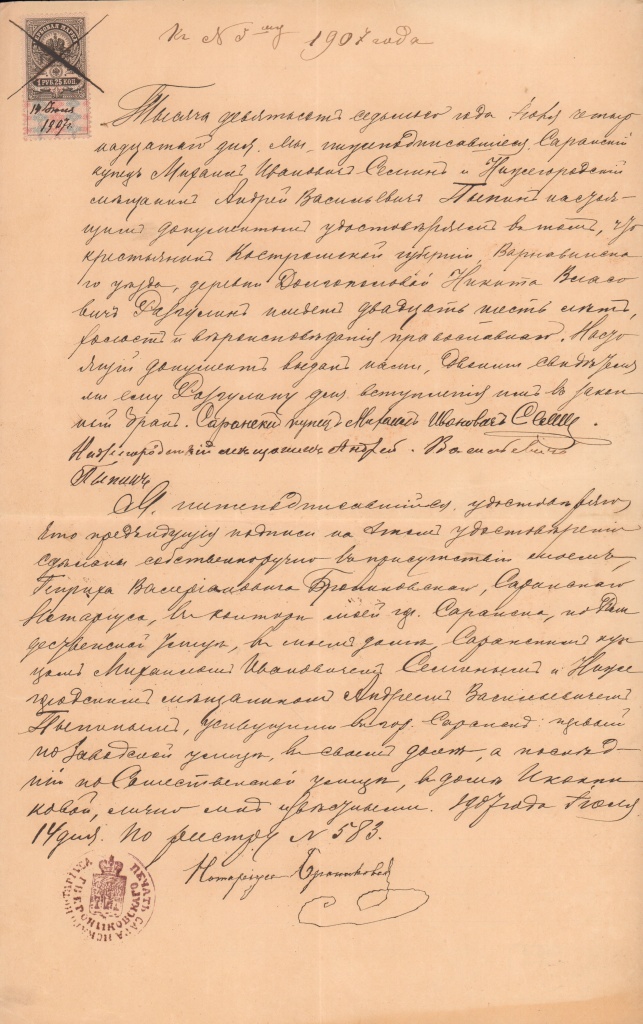 Къ N 5му 1907 года
1 РУБ. 25 КОП.
14 Июля
1907 г.
Тысяча девятьсотъ седьмого года Іюля четыр
надцатаго дня. Мы, нижеподписавшіеся, Саранскій
купецъ Михаилъ Ивановичъ Семинъ и Нижегородскій
мѣщанинъ Андрей Васильевичъ Пыпинъ настоя-
щимъ документомъ удостовѣряемъ въ томъ, что
крестьянинъ Костромской губерніи, Варнавинска
го уѣзда, деревни Долгополовой Никита Власо
вичъ Разгулинъ имѣетъ двадцать шесть лѣтъ,
холостъ и вѣроисповѣданія православнаго. Насто
ящій документъ выданъ нами, свидѣтеля
ми ему Разгулину для вступленія имъ въ закон
ный бракъ. Саранскій купецъ Михаилъ Ивановичъ Семинъ.
Нижегородскій мѣщанинъ Андрей Васильевичъ
Пыпинъ
Я, нижеподписавшійся, удостовѣряю,
что предыдущія подписи на этомъ удостовѣреніи
сдѣланы собственноручно въ присутствіи моемъ,
Генриха Валеріановича Брониковскаго, Саранскаго
Нотаріуса, въ конторѣ моей гор. Саранска, по
улицѣ, въ моемъ домѣ, Саранскимъ куп
цомъ Михаиломъ Ивановичемъ Семинымъ и Ниже
городскимъ мѣщаниномъ Андреемъ Васильевичемъ
Пыпинымъ, живущими въ гор. Саранскѣ: первый
по Заводской улицѣ, въ своемъ домѣ, а послѣд-
ній по улицѣ, въ домѣ Иконни
ковой, лично мнѣ извѣстными. 1907 года Іюля
14 дня. По реестру N 583.
Нотаріусъ Брониковскій
ПЕЧАТЬ САРАНСКАГО НОТАРІУСА Г.В. БРОНИКОВСКАГО